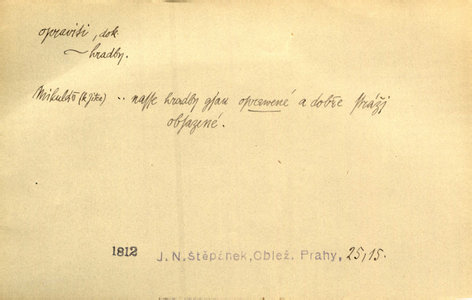 opraviti, dok
~ hradby.
Mikuláš (k Jitce) .. nasse hradby gsau oprawené a dobře stráží
obsazené.
1812 J. N. Štěpánek, Oblež. Prahy, 25, 15.